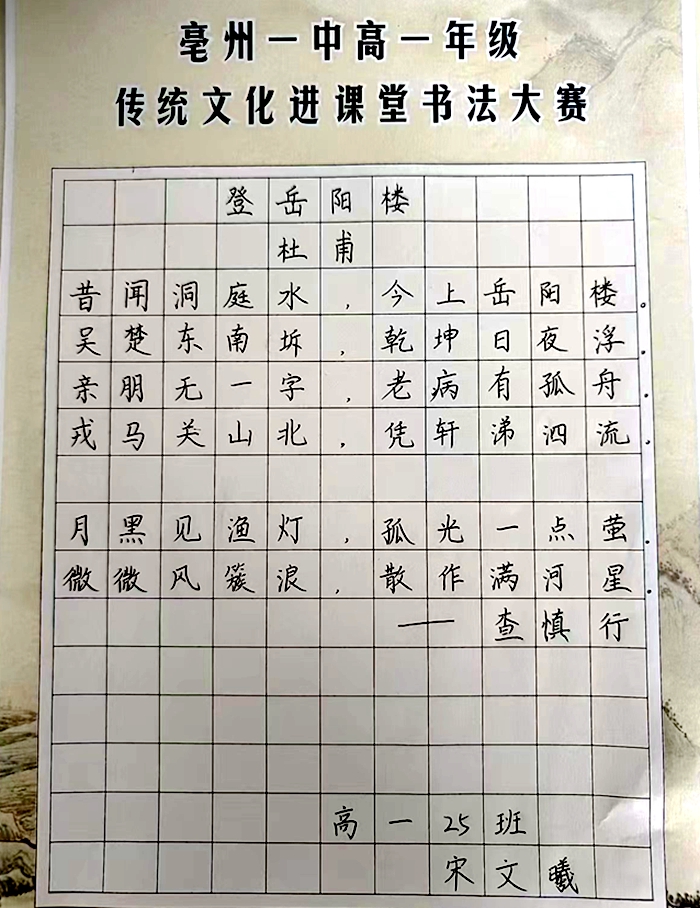 亳州一中高一年级
传统文化进课堂书法大赛
登岳阳楼
杜甫
昔闻洞庭水，今上岳阳楼。
吴楚东南坼，乾坤日夜浮。
亲朋无一字，老病有孤舟。
戎马关山北，凭轩涕泗流。
月黑见渔灯，孤光一点萤。
微微风簇浪，散作满河星。
——查慎行
高一25班
宋文曦